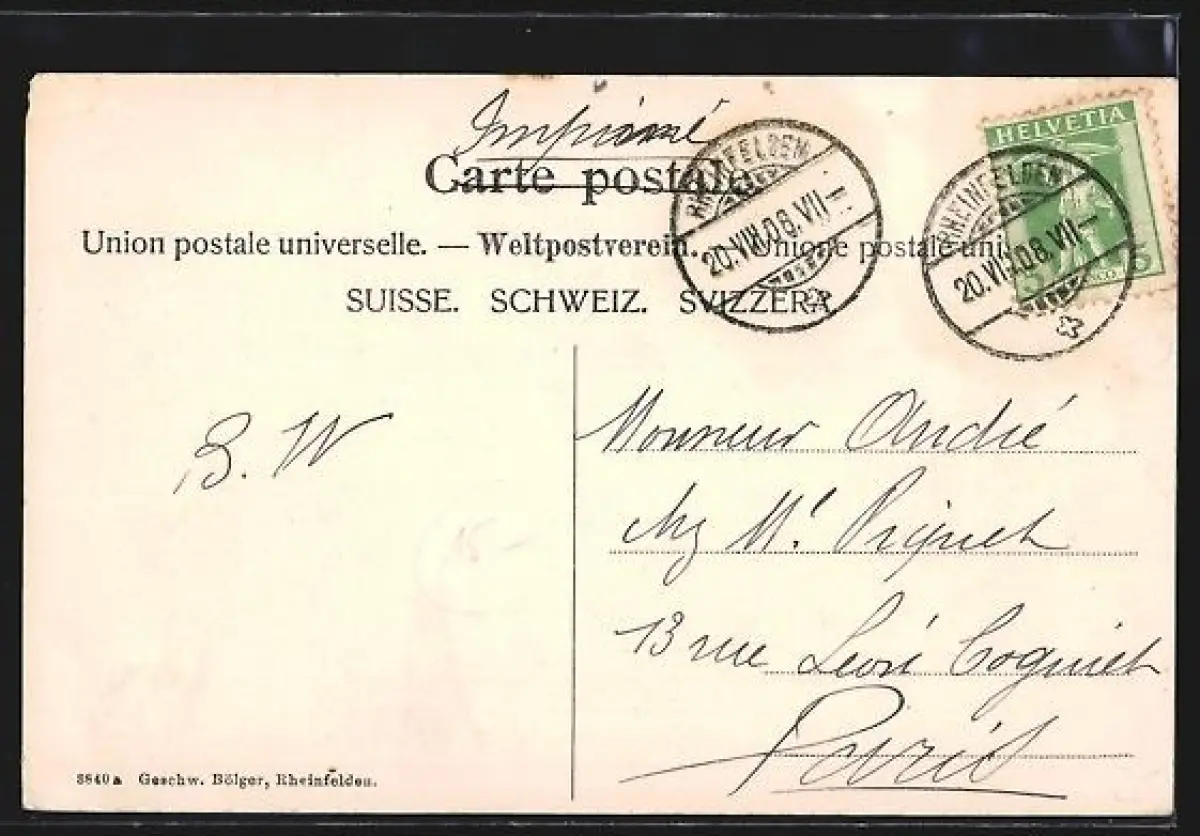 Imprimé
Carte postale
HELVETIA
RHEINFELDEN
20.VIII.08.VII
RHEINFELDEN
20.VII.08.VII
Union postale universelle. — Weltpostverein. — Unione postale uni
SUISSE. SCHWEIZ. SVIZZERA
5
Monsieur André
B. W
chez Mr. Piguet
15-
13 rue Léon Cogniet
Paris
3840a Geschw. Bölger, Rheinfelden.